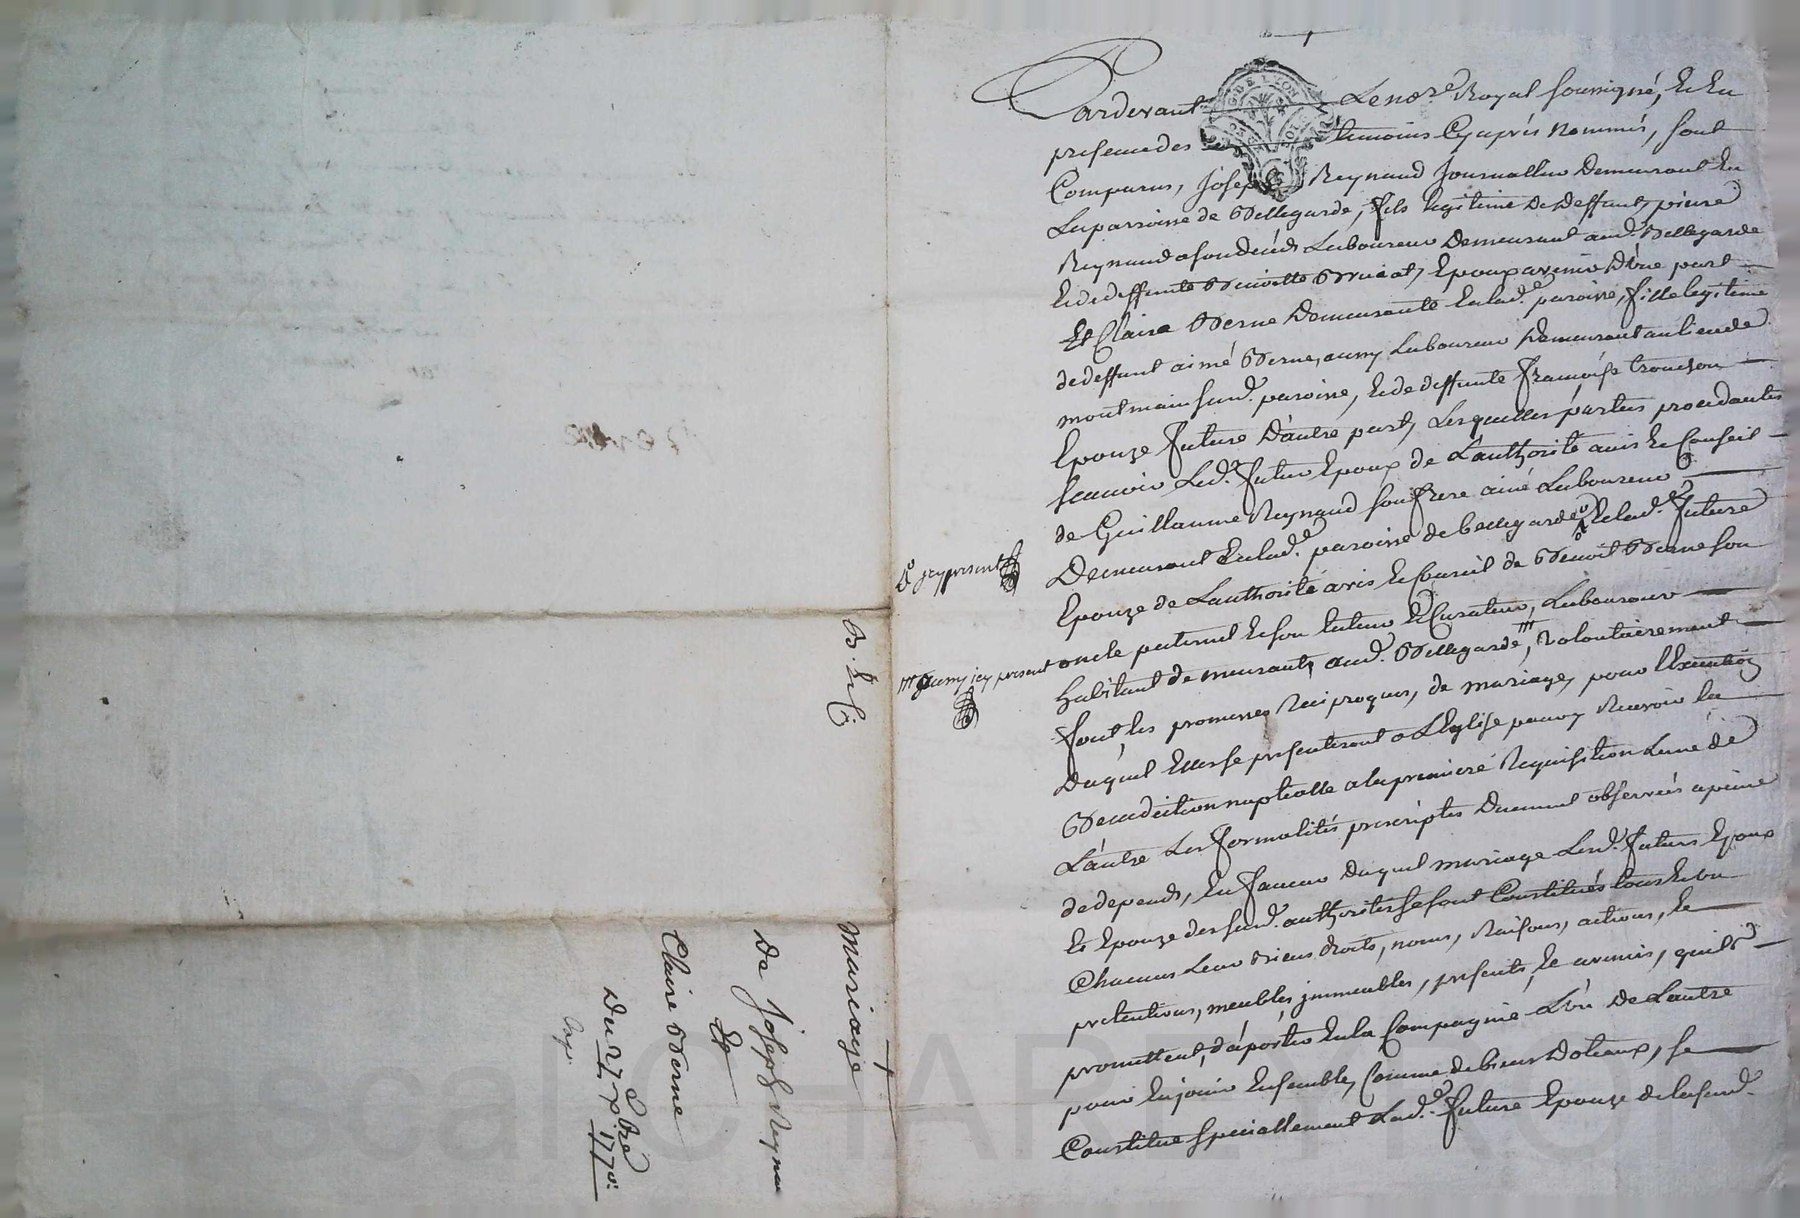 Pardevant Le no.re Royal soussigné, Et En
presence des temoins Cy après Nommés, sont
Comparus, Joseph Reynaud Journallier Demeurant En
La paroisse de Bellegarde, fils legitime De Deffunt pierre
Reynaud a son décéds Laboureur Demeurant aud. Bellegarde
Et de deffunte Benoitte Epoux avenir D'une part
Et Claire Berne Demeurante En lad.e paroisse, fille legitime
de deffunt aimé Berne, aussy Laboureur Demeurant au lieu de
montmain susd. paroisse, Et de deffunte françoise tronchon
Epouze future D'autre part, Lesquelles parties procedantes
scauoir Led. futur Epoux de L'authorité avis Et Conseil
de Guillaume Reynaud son frere ainé Laboureur
Demeurant En lad.e paroisse de bellegarde Et lad.e future
Epouze de Lauthorité avis Et Conseil de Benoit Berne son
oncle paternel Et son tuteur Et Curateur, Laboureur
habitant demeurant, aud. Bellegarde, Volontairement
font les promesses Reciproques, de mariage, pour L'Execution
Duquel Elles se presenteront a L'Eglise pour y Recevoir la
Benediction nuptialle a la premiere Requisition Lune de
L'autre Les formalités prescriptes Duement observées a peine
de depends, En faveur Duquel mariage Lesd. futurs Epoux
Et Epouze des susd. authorités se sont Constitués tous Et un
Chacuns Leur biens droits, noms, Raisons, actions, Et
pretentions, meubles, immeubles, presents, Et avenir, quils
promettent, d'aporter En la Compagnie L'un De Lautre
pour En jouir Ensemble, Comme de biens Dotaux, se
Constitue specialement Lad.e future Epouze de la susd.
icy present
aussy icy present
B. Et C.
Mariage
De Joseph Reynaud
Et
Claire Berne
Du 27 1770.